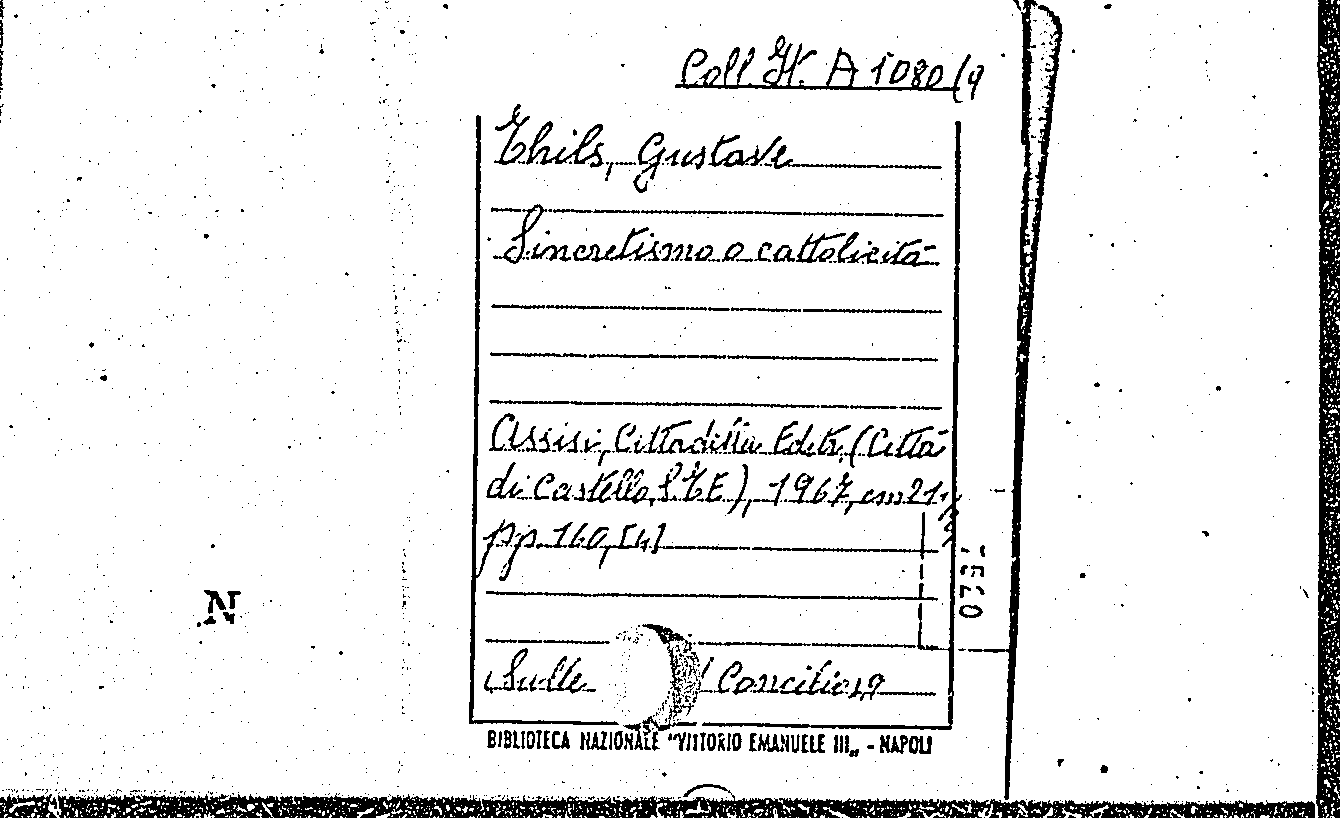 Coll. It. A 1080/9
Thils, Gustave
Sincretismo o cattolicità
Assisi, Cittadella Editr. (Città
di Castello, S.T.E.), 1967, cm 21,
pp. 160, [4]
(Sulle Concilio, 9
N
BIBLIOTECA NAZIONALE "VITTORIO EMANUELE III„ - NAPOLI